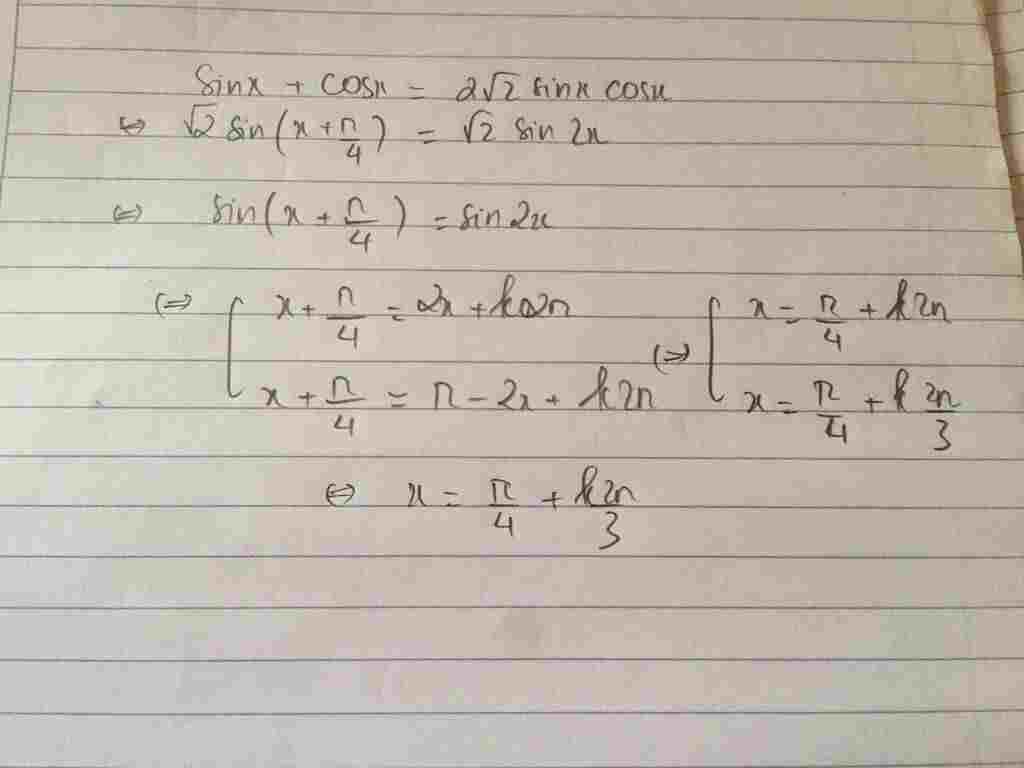 sinx + cosx = 2√2 sinx cosx
⇔ √2 sin(x + π/4) = √2 sin 2x
⇔ sin(x + π/4) = sin 2x
⇔ [ x + π/4 = 2x + k2π ⇔ [ x = π/4 + k2π
x + π/4 = π - 2x + k2π x = π/4 + k 2π/3
⇔ x = π/4 + k2π/3